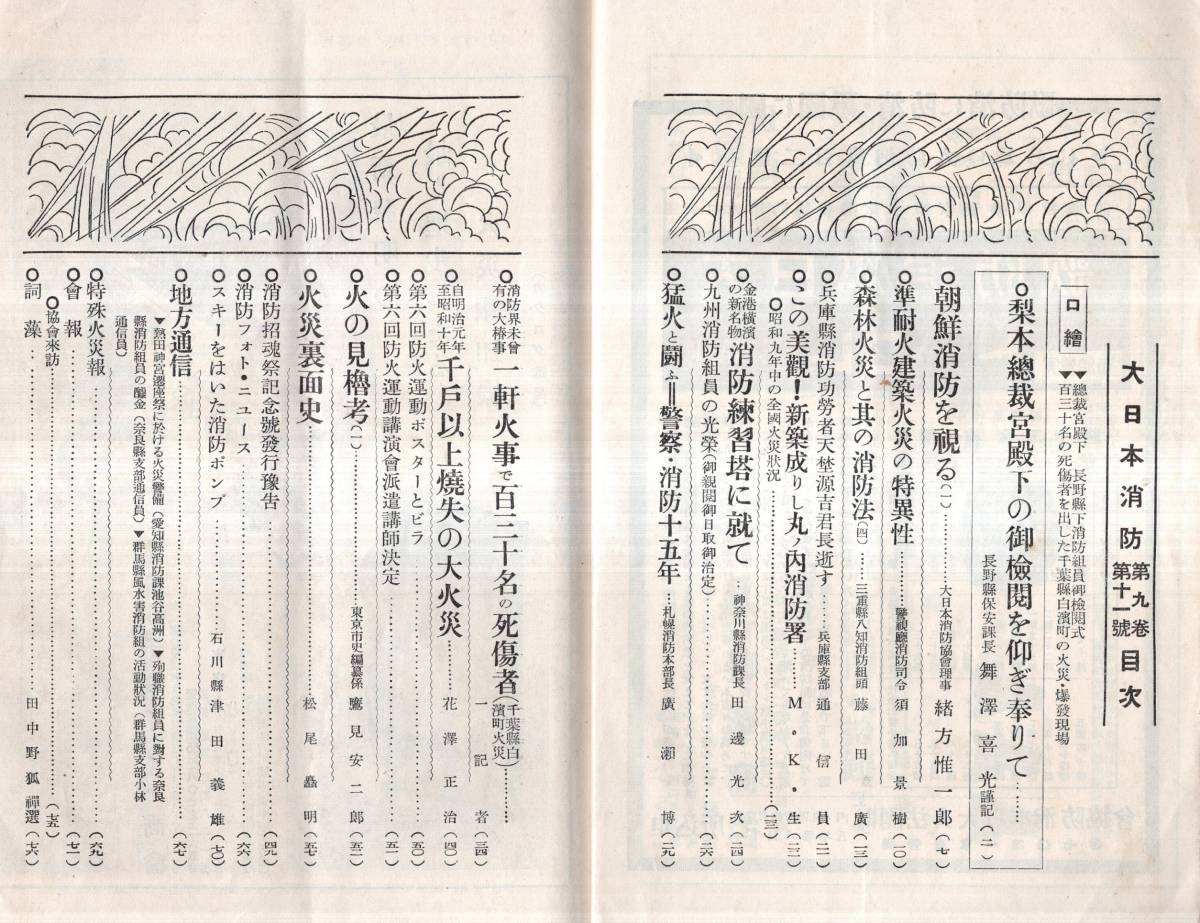 大日本消防 第九卷 第十一號 目次
口繪
▼總裁宮殿下 長野縣下消防組員御檢閱式
▼百三十名の死傷者を出した千葉縣白濱町の火災・爆發現場
○梨本總裁宮殿下の御檢閱を仰ぎ奉りて……
長野縣保安課長 舞澤喜光謹記(二)
○朝鮮消防を視る(一)……大日本消防協會理事 緒方惟一郎(七)
○準耐火建築火災の特異性……警視廳消防司令 須加景樹(一〇)
○森林火災と其の消防法(四)……三重縣八知消防組頭 藤田廣(一三)
○兵庫縣消防功勞者天埜源吉君長逝す……兵庫縣支部通信員(二一)
○この美觀!新築成りし丸ノ內消防署……M・K・生(二二)
○昭和九年中の全國火災狀況……(二三)
○金港橫濱の新名物 消防練習塔に就て…神奈川縣消防課長 田邊光次(二四)
○九州消防組員の光榮(御親閱御日取御治定)……(二六)
○猛火と鬪ふ=警察・消防十五年…札幌消防本部長 廣瀨博(二九)
○消防界未曾有の大椿事 一軒火事で百三十名の死傷者(千葉縣白濱町火災)……一記者(三四)
○自明治元年至昭和十年 千戶以上燒失の大火災……花澤正治(四〇)
○第六回防火運動ポスターとビラ……(五〇)
○第六回防火運動講演會派遣講師決定……(五一)
○火の見櫓考(一)……東京市史編纂係 鷹見安二郎(五二)
○火災裏面史……松尾矗明(五七)
○消防招魂祭記念號發行豫告……(四九)
○消防フォト・ニュース……(六六)
○スキーをはいた消防ポンプ……石川縣 津田義雄(七〇)
○地方通信……(六七)
▼熱田神宮遷座祭に於ける火災警備(愛知縣消防課池谷高洲)▼殉職消防組員に對する奈良
縣消防組員の醵金(奈良縣支部通信員)▼群馬縣風水害消防組の活動狀況(群馬縣支部小林
通信員)
○特殊火災報……(六九)
○會報……(七一)
○協會來訪……(七五)
○詞藻……田中野狐禪選(七六)